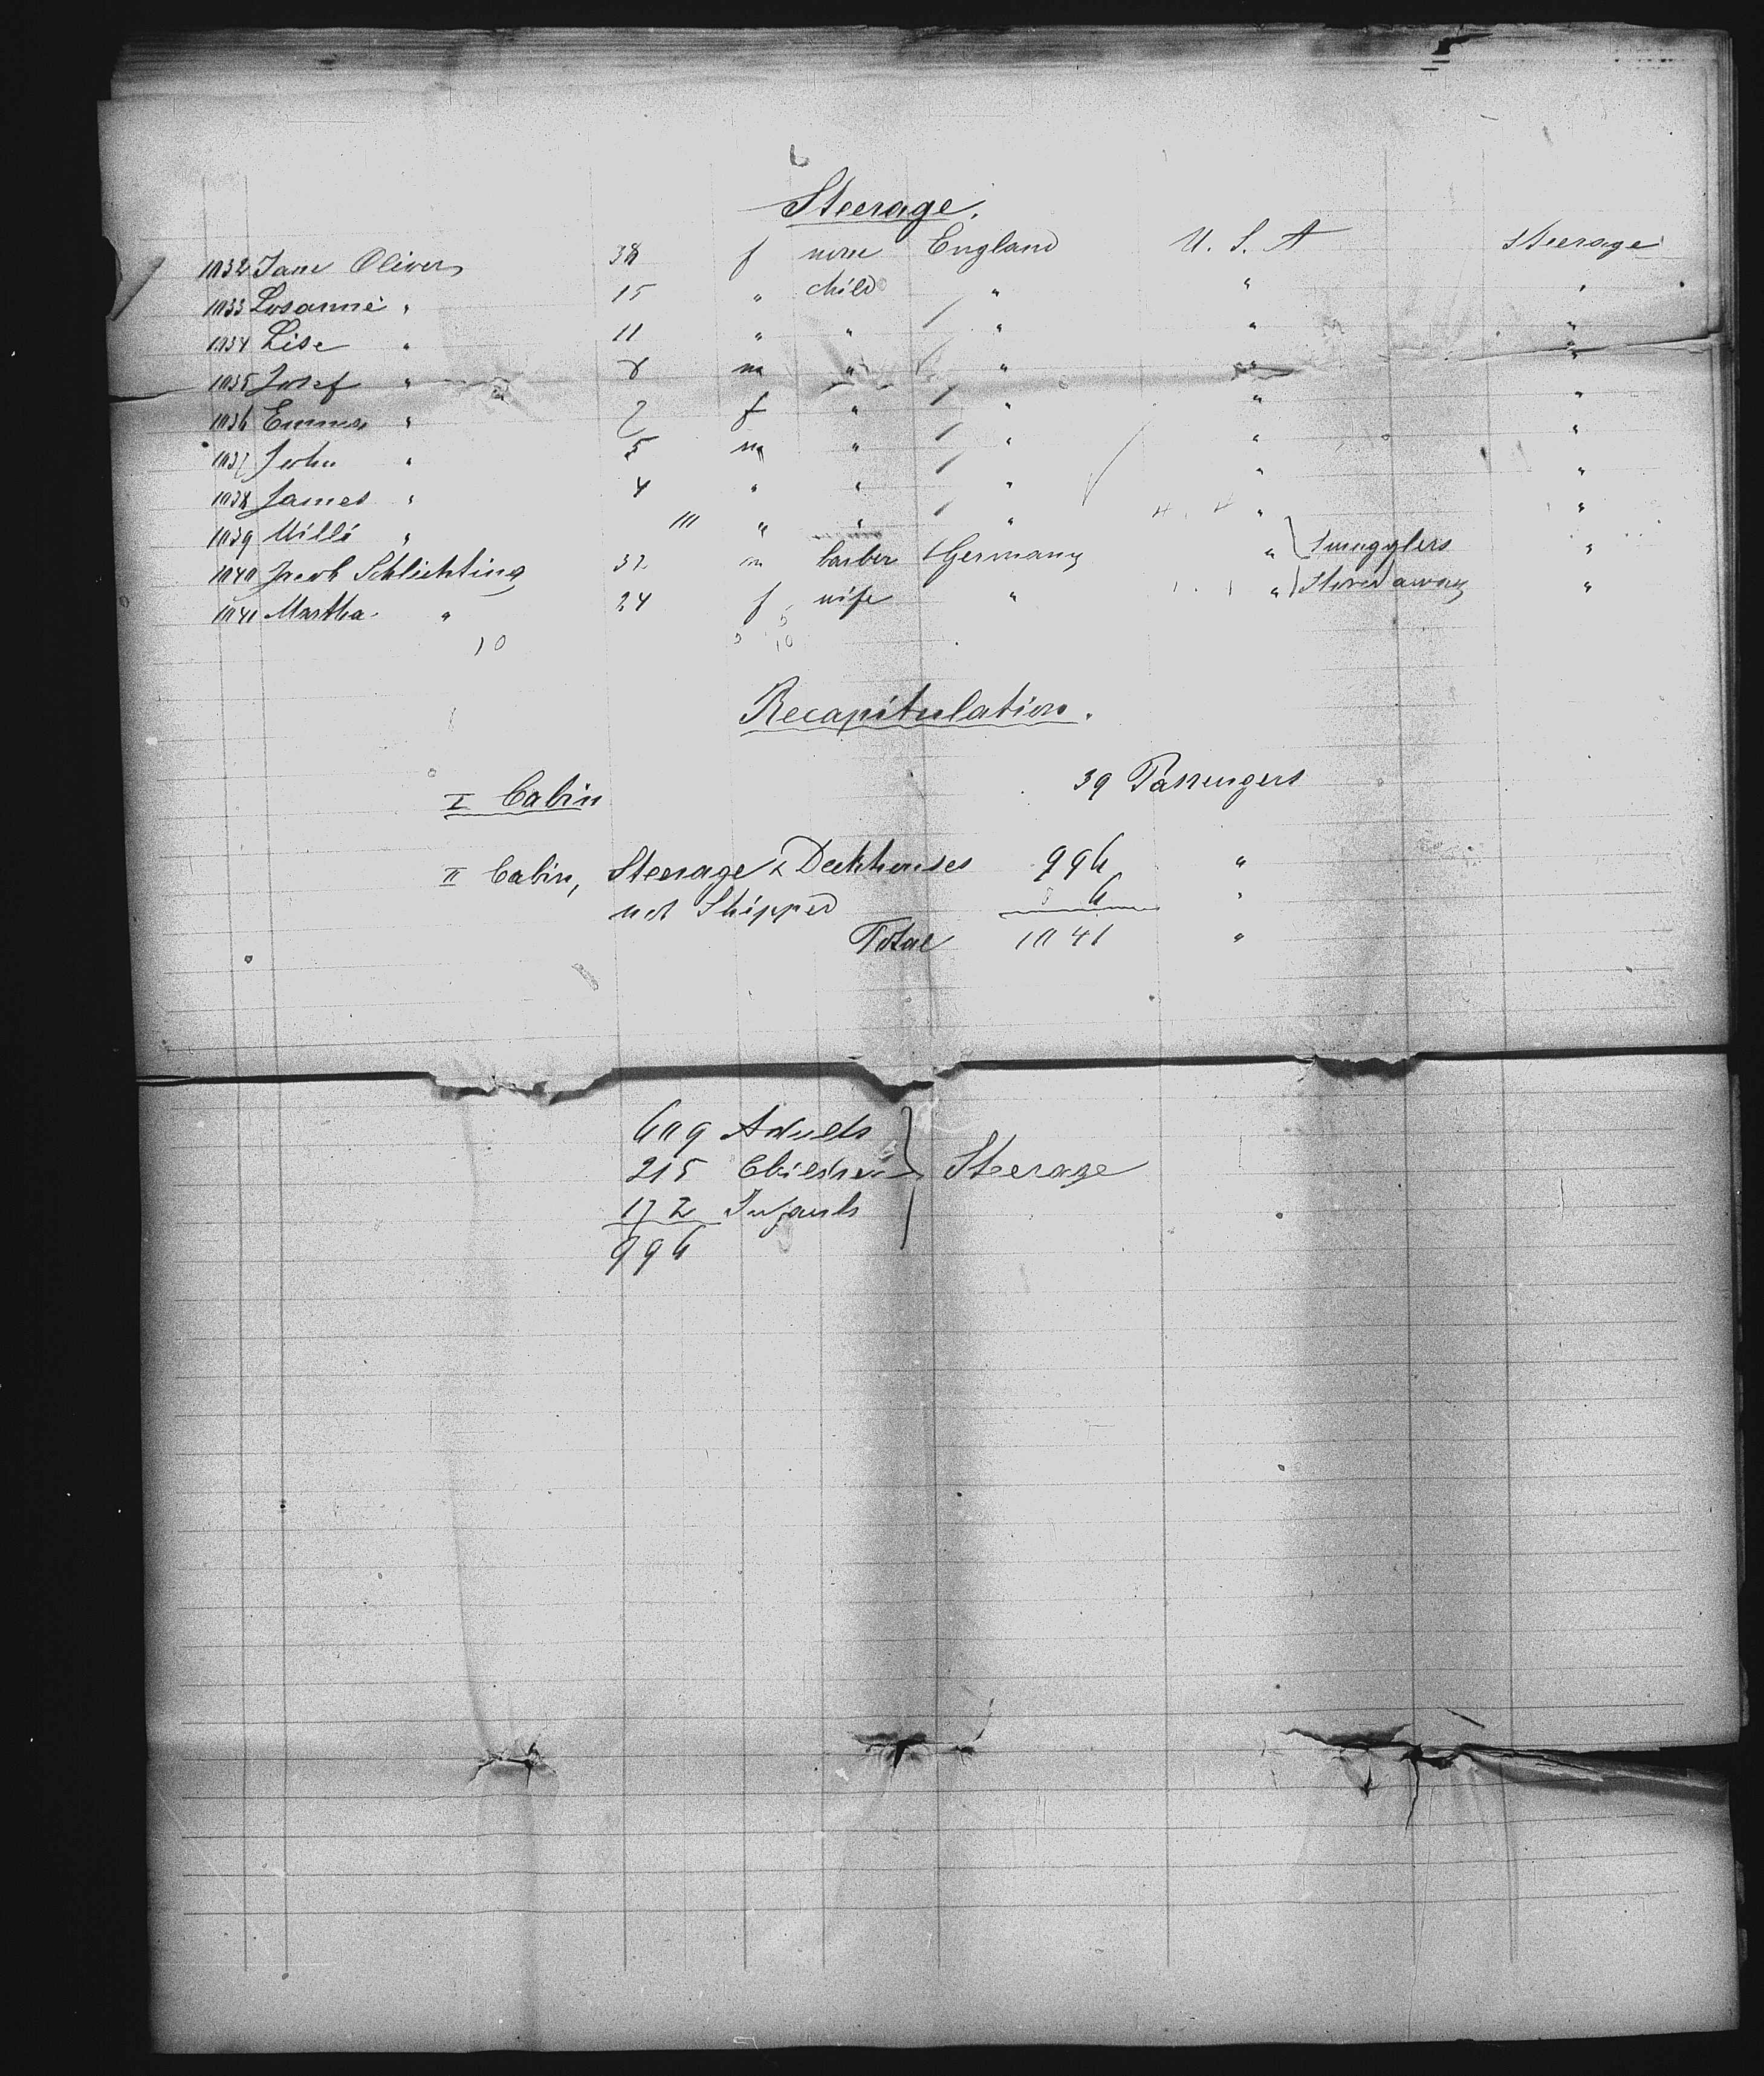 Steerage.
1032 Jane Oliver 38 f none England U. S. A Steerage
1033 Losanne " 15 " child " " "
1034 Lise " 11 " " " " "
1035 Josef " 8 m " " " "
1036 Emma " 7 f " " " "
1037 John " 5 m " " " "
1038 James " 4 " " " " "
1039 Willi " " " " " "
1040 Jacob Schlichting 32 m barber Germany " Smugglers "
1041 Martha " 24 f wife " " Stowed away "
10 5 10
Recapitulation.
I Cabin 39 Passengers
II Cabin, Steerage & Deckhouses 996 "
not Shipped 6 "
Total 1041 "
609 Adults
215 Children Steerage
172 Infants
996